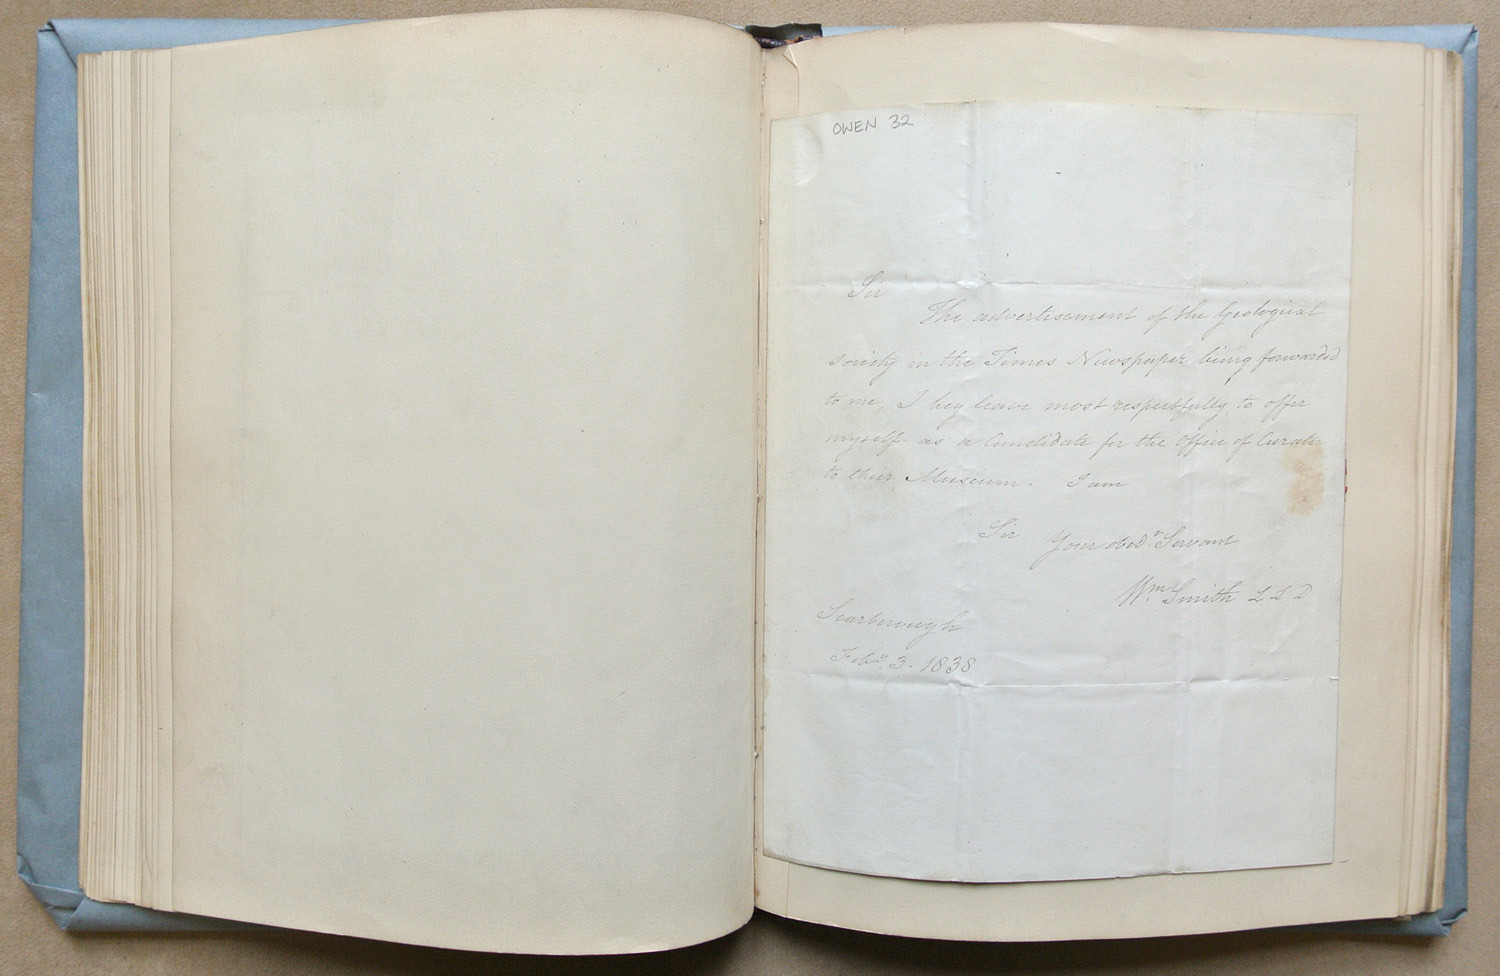 OWEN 32
Sir
The advertisement of the Geological
society in the Times Newspaper being forwarded
to me, I beg leave most respectfully to offer
myself as a Candidate for the Office of Curator
to their Museum. I am
Sir Your obedt. Servant
Wm. Smith LLD
Scarborough
Feby 3. 1838